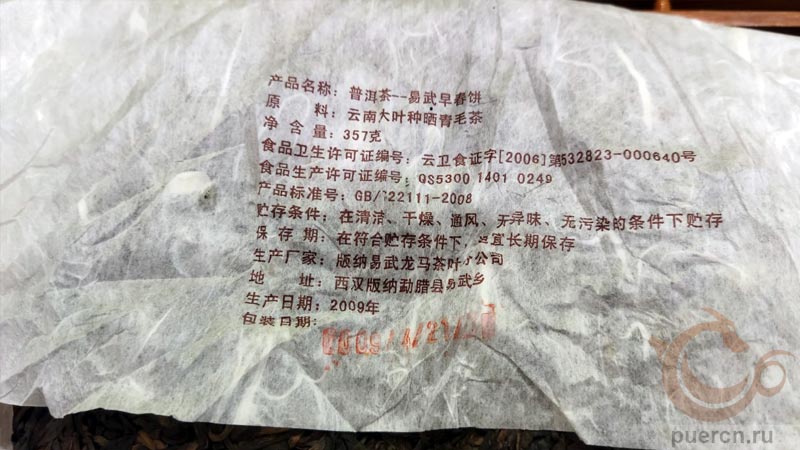 产品名称：普洱茶--易武早春饼
原　　料：云南大叶种晒青毛茶
净 含 量：357克
食品卫生许可证编号：云卫食证字[2006]第532823-000640号
食品生产许可证编号：QS5300 1401 0249
产品标准号：GB/ 22111-2008
贮存条件：在清洁、干燥、通风、无异味、无污染的条件下贮存
保 存 期：在符合贮存条件下，宜长期保存
生产厂家：版纳易武龙马茶叶 公司
地　　址：西汉版纳勐腊县易武乡
生产日期：2009年
包装日期：
puercn.ru